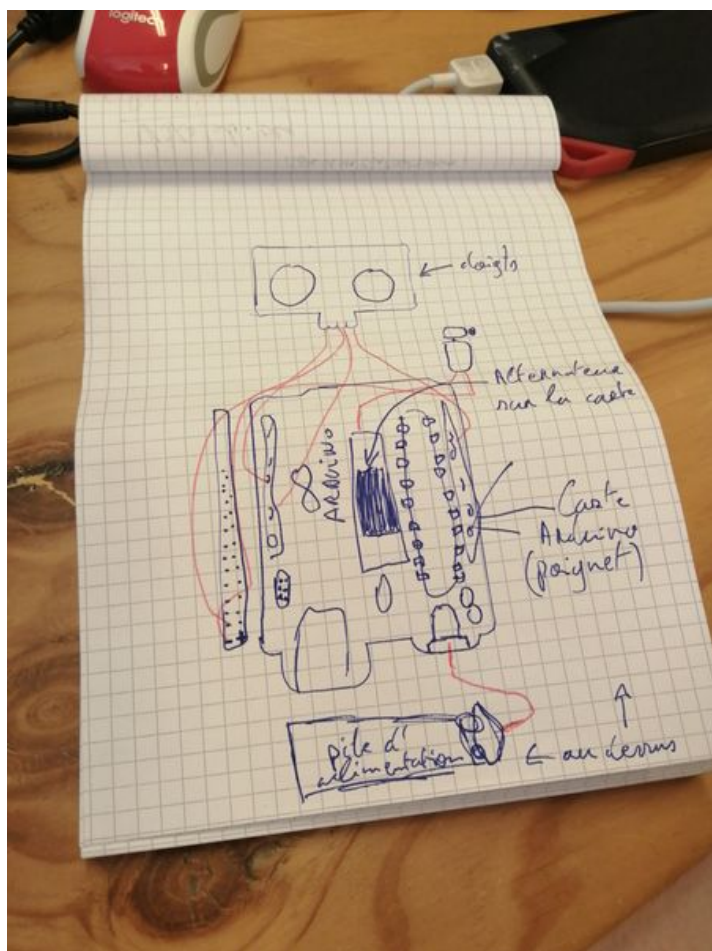 logitech
← doigts
Alternateur
sur la carte
ARDUINO
Carte
Arduino
(poignet)
pile d'
alimentation
← au dessus